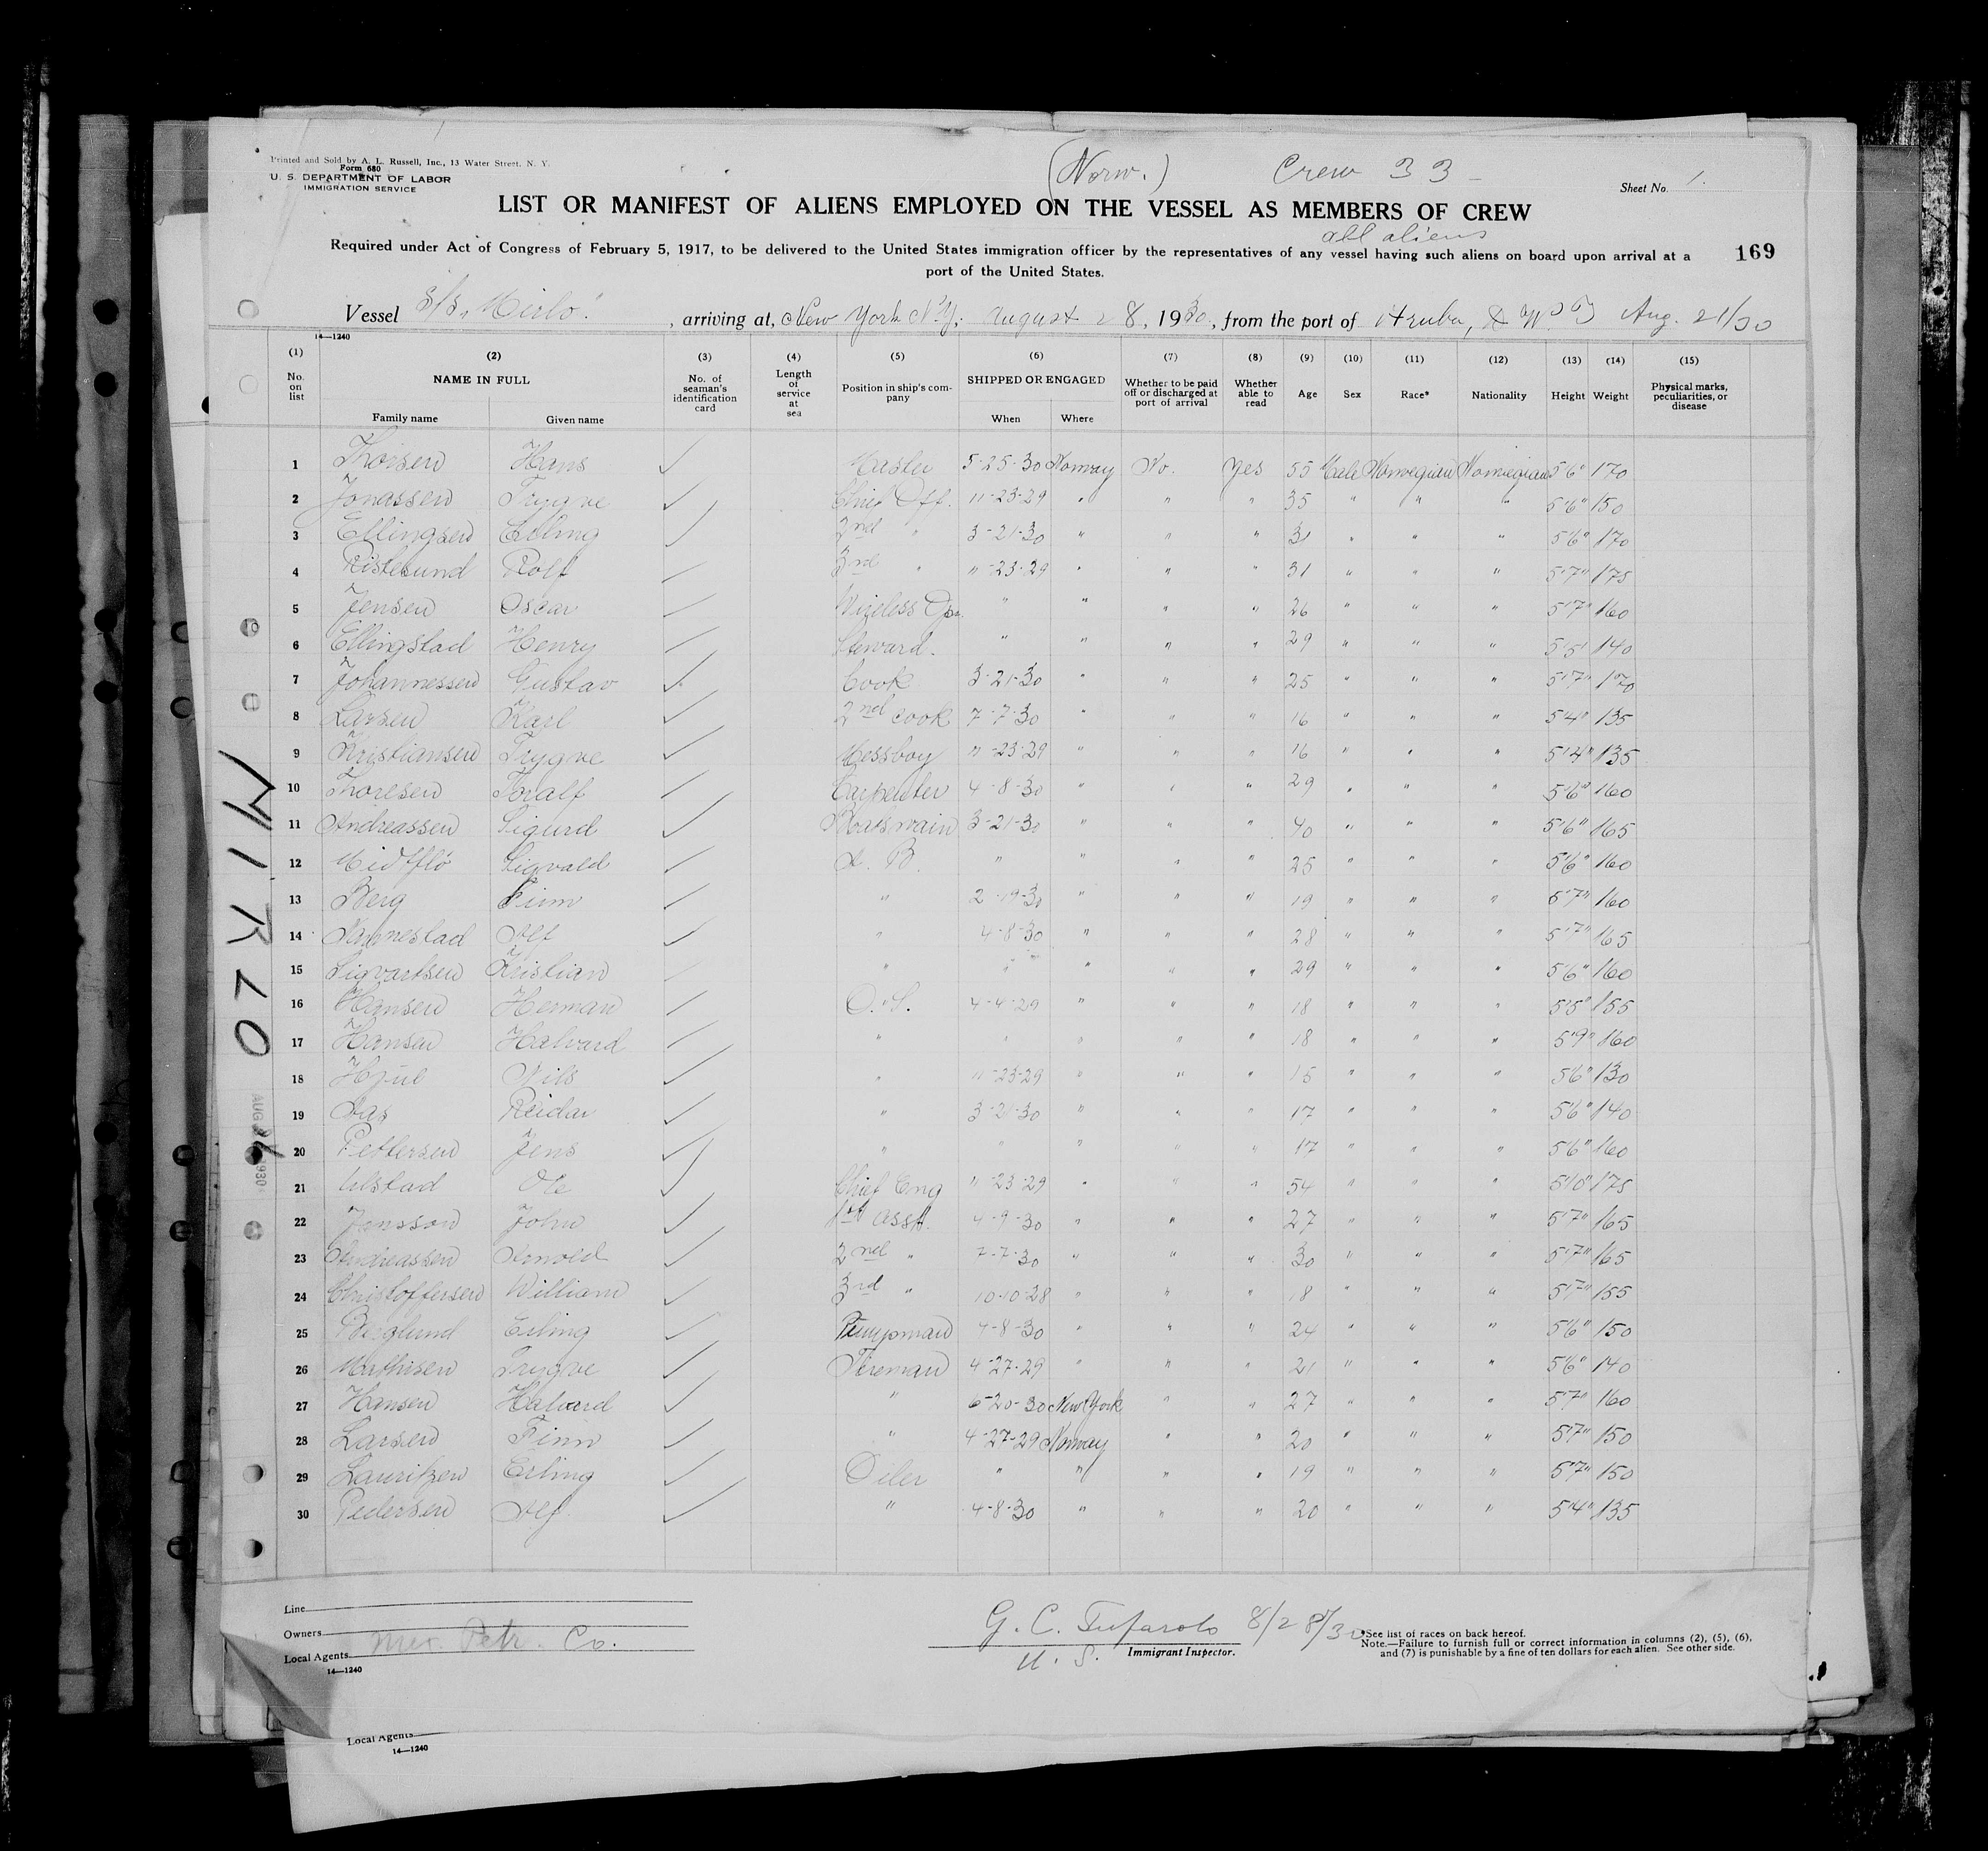 Printed and Sold by A. L. Russell, Inc., 13 Water Street, N. Y.
Form 680
U. S. DEPARTMENT OF LABOR
IMMIGRATION SERVICE
(Norw.) Crew 33 -
Sheet No. 1.
LIST OR MANIFEST OF ALIENS EMPLOYED ON THE VESSEL AS MEMBERS OF CREW
all aliens
Required under Act of Congress of February 5, 1917, to be delivered to the United States immigration officer by the representatives of any vessel having such aliens on board upon arrival at a
port of the United States.
169
Vessel S/S "Mirlo", arriving at, New York N.Y., August 28, 1930, from the port of Aruba, D.W.I Aug. 21/30
14—1240
(1) (2) (3) (4) (5) (6) (7) (8) (9) (10) (11) (12) (13) (14) (15)
No. on list NAME IN FULL Family name Given name No. of seaman's identification card Length of service at sea Position in ship's company SHIPPED OR ENGAGED When Where Whether to be paid off or discharged at port of arrival Whether able to read Age Sex Race* Nationality Height Weight Physical marks, peculiarities, or disease
1 Thorsen Hans Master 5-25-30 Norway No. Yes 55 Male Norwegian Norwegian 5'6" 170
2 Jonassen Trygve Chief Off. 11-23-29 " " " 35 " " " 5'6" 150
3 Ellingsen Erling 2nd " 3-21-30 " " " 31 " " " 5'6" 170
4 Ristesund Rolf 3rd " 11-23-29 " " " 31 " " " 5'7" 175
5 Jensen Oscar Wireless Opr. " " " " 26 " " " 5'7" 160
6 Ellingstad Henry Steward. " " " " 29 " " " 5'5" 140
7 Johannessen Gustav Cook 3-21-30 " " " 25 " " " 5'7" 170
8 Larsen Karl 2nd cook 7-7-30 " " " 16 " " " 5'4" 135
9 Kristiansen Trygve Messboy 11-23-29 " " " 16 " " " 5'4" 135
10 Thoresen Toralf Carpenter 4-8-30 " " " 29 " " " 5'6" 160
11 Andreassen Sigurd Boatswain 3-21-30 " " " 40 " " " 5'6" 165
12 Midtflø Sigvald A. B. " " " " 25 " " " 5'6" 160
13 Berg Finn " 2-19-30 " " " 19 " " " 5'7" 160
14 Alf " 4-8-30 " " " 28 " " " 5'7" 165
15 Sigvartsen Kristian " " " " " 29 " " " 5'6" 160
16 Hansen Herman O.S. 4-4-29 " " " 18 " " " 5'5" 155
17 Hansen Halvard " " " " " 18 " " " 5'9" 160
18 Hjul Nils " 11-23-29 " " " 15 " " " 5'6" 130
19 Aas Reidar " 3-21-30 " " " 17 " " " 5'6" 140
20 Pettersen Jens " " " " " 17 " " " 5'6" 160
21 Ulstad Ole Chief Eng 11-23-29 " " " 54 " " " 5'10" 175
22 Jonsson John 1st asst. 4-9-30 " " " 27 " " " 5'7" 165
23 Andreassen Arnold 2nd " 7-7-30 " " " 30 " " " 5'7" 165
24 Christoffersen William 3rd " 10-10-28 " " " 18 " " " 5'7" 155
25 Berglund Erling Pumpman 4-8-30 " " " 24 " " " 5'6" 150
26 Mathisen Trygve Fireman 4-27-29 " " " 21 " " " 5'6" 140
27 Hansen Halvard " 6-20-30 New York " " 27 " " " 5'7" 160
28 Larsen Finn " 4-27-29 Norway " " 20 " " " 5'7" 150
29 Lauritzen Erling Oiler " " " " 19 " " " 5'7" 150
30 Pedersen Alf " 4-8-30 " " " 20 " " " 5'4" 135
MIRLO
AUG 1930
Line
Owners
Local Agents
Mex. Petr. Co.
14—1240
G. C. Tufarolo 8/28/30
U. S. Immigrant Inspector.
*See list of races on back hereof.
Note.—Failure to furnish full or correct information in columns (2), (5), (6),
and (7) is punishable by a fine of ten dollars for each alien. See other side.
Local Agents
14—1240